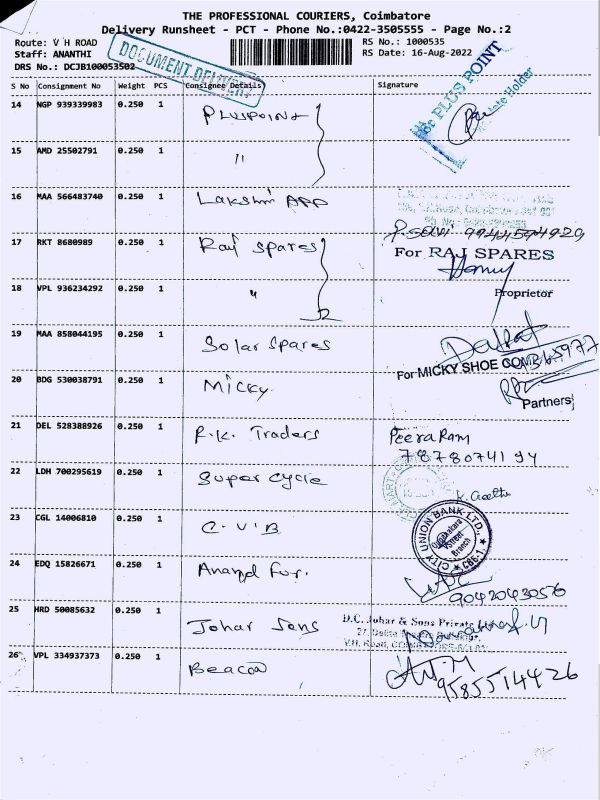 THE PROFESSIONAL COURIERS, Coimbatore
Delivery Runsheet - PCT - Phone No.:0422-3505555 - Page No.:2
Route: V H ROAD
Staff: ANANTHI
DRS No.: DCJB100053502
RS No.: 1000535
RS Date: 16-Aug-2022
DOCUMENT DELIVERY
S No Consignment No Weight PCS Consignee Details Signature
14 NGP 939339983 0.250 1 PLUSPOINT
For PLUS POINT
15 AMD 25502791 0.250 1 "
16 MAA 566483740 0.250 1 Lakshmi APP
17 RKT 8680989 0.250 1 Raj Spares
For RAJ SPARES
18 VPL 936234292 0.250 1 "
Proprietor
19 MAA 858044195 0.250 1 Solar Spares
20 BDG 530038791 0.250 1 Micky
For MICKY SHOE
Partners
21 DEL 528388926 0.250 1 R.K. Traders Peeraram
7878074194
22 LDH 700295619 0.250 1 Super Cycle
K. Geetha
23 CGL 14006810 0.250 1 C.U.B
CITY UNION BANK LTD., Branch CBE-1
24 EDQ 15826671 0.250 1 Anand Fur.
9042043056
25 HRD 50085632 0.250 1 Johar Sons
D.C. Johar & Sons Private
26 VPL 334937373 0.250 1 Beacon
9585514426